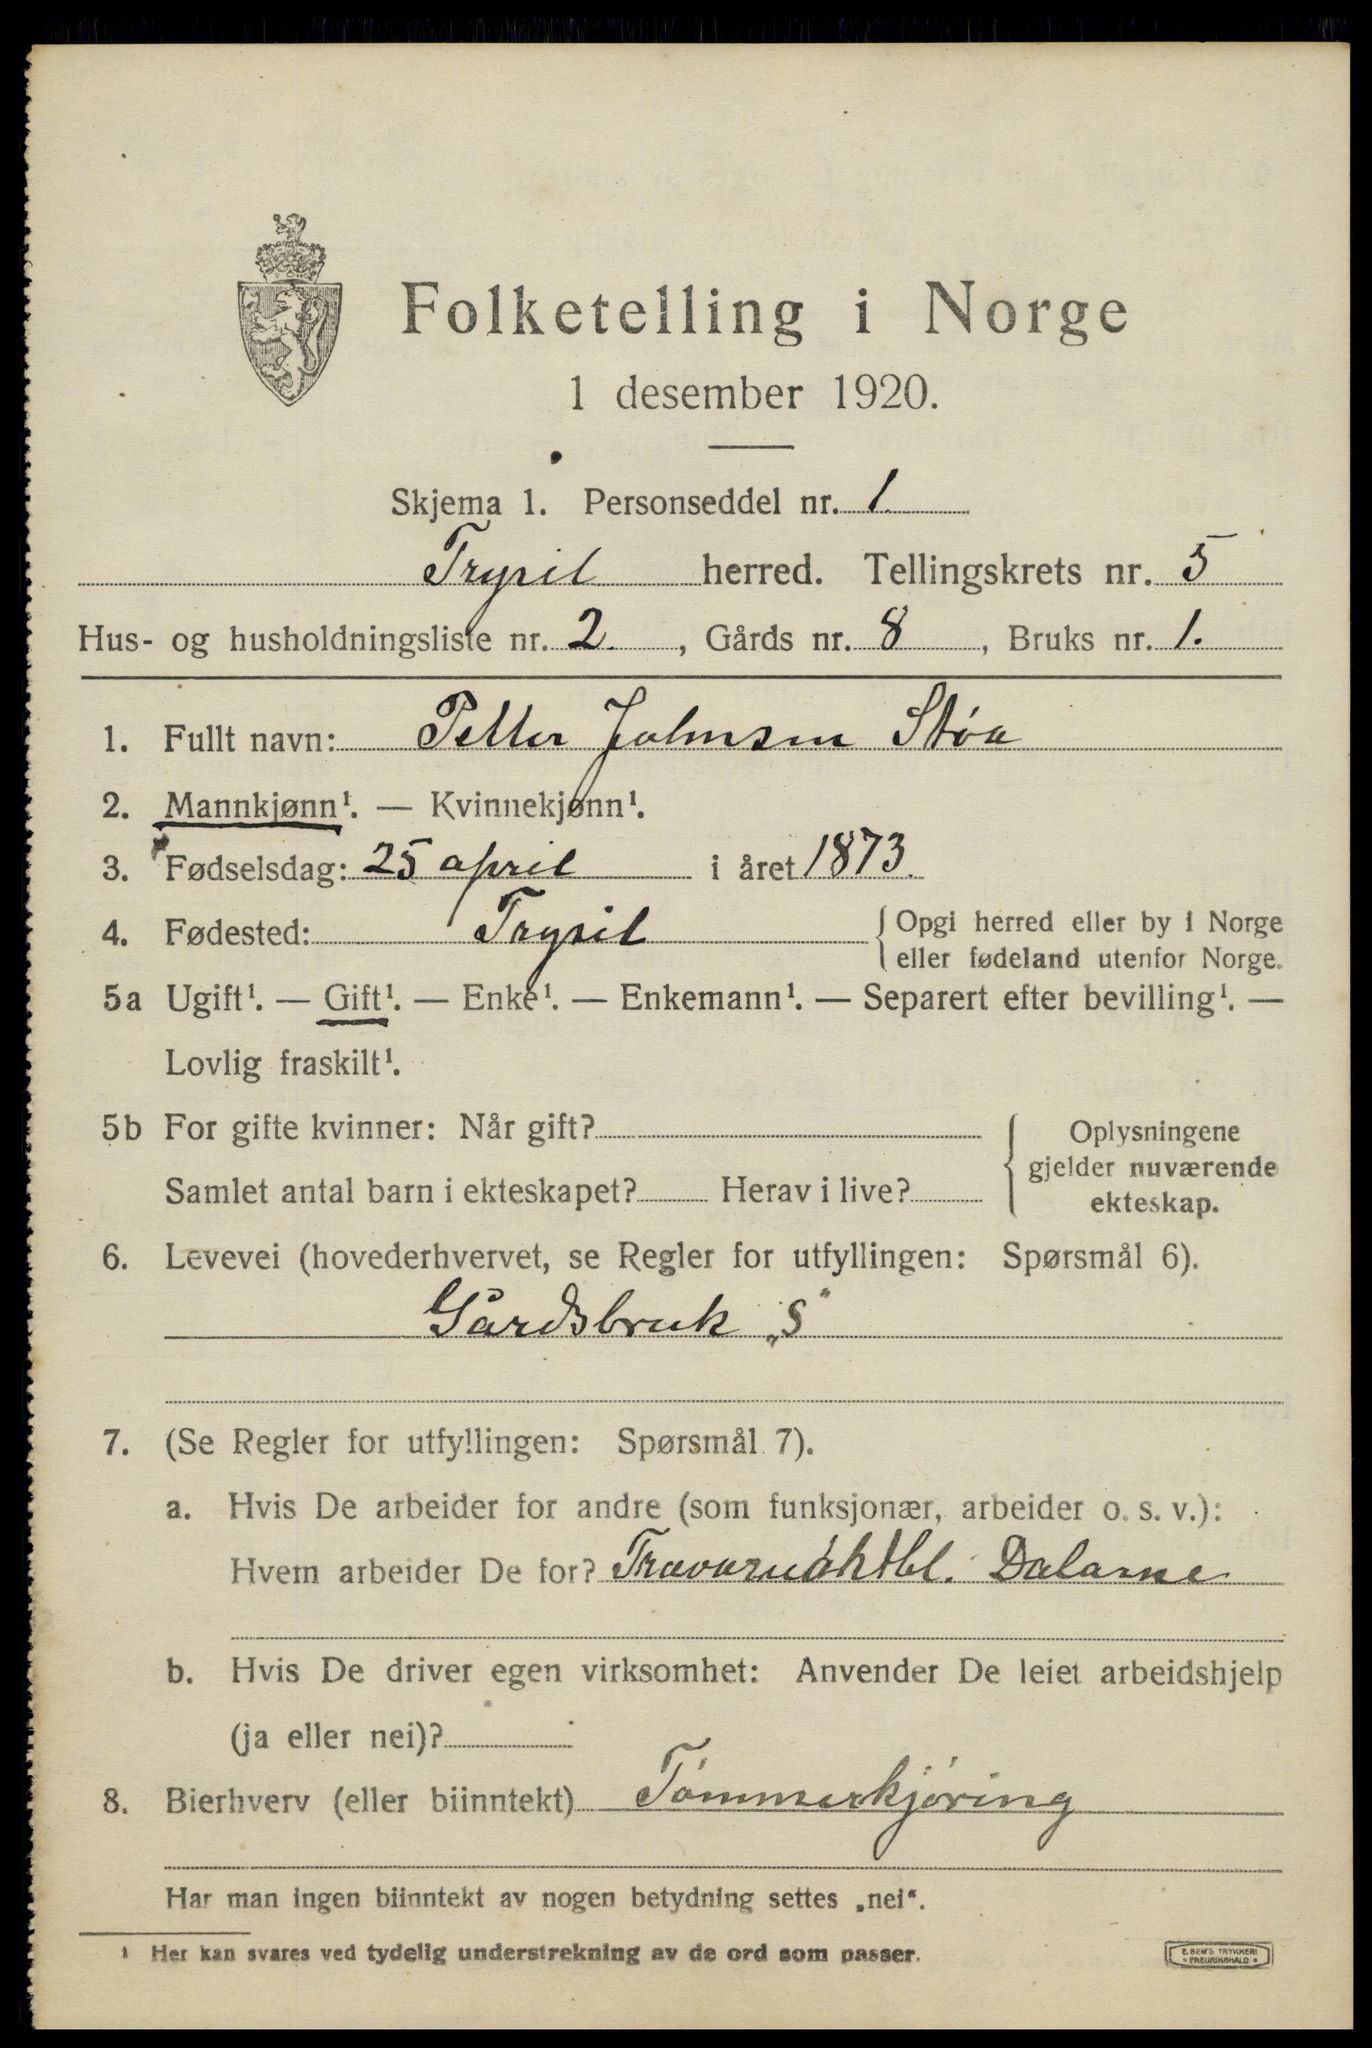 Folketelling i Norge
1 desember 1920.
Skjema 1. Personseddel nr. 1
Trysil herred. Tellingskrets nr. 5
Hus- og husholdningsliste nr. 2. , Gårds nr. 8 , Bruks nr. 1.
1. Fullt navn: Petter Johnsen Støa
2. Mannkjønn¹. — Kvinnekjønn¹.
3. Fødselsdag: 25 april i året 1873.
4. Fødested: Trysil { Opgi herred eller by i Norge
eller fødeland utenfor Norge.
5a Ugift¹. — Gift¹. — Enke¹. — Enkemann¹. — Separert efter bevilling¹. —
Lovlig fraskilt¹.
5b For gifte kvinner: Når gift?
Samlet antal barn i ekteskapet? Herav i live?
Oplysningene
gjelder nuværende
ekteskap.
6. Levevei (hovederhvervet, se Regler for utfyllingen: Spørsmål 6).
Gårdsbruk „S“
7. (Se Regler for utfyllingen: Spørsmål 7).
a. Hvis De arbeider for andre (som funksjonær, arbeider o. s. v.):
Hvem arbeider De for? Dalarne
b. Hvis De driver egen virksomhet: Anvender De leiet arbeidshjelp
(ja eller nei)?
8. Bierhverv (eller biinntekt) Tømmerkjøring
Har man ingen biinntekt av nogen betydning settes „nei“.
¹ Her kan svares ved tydelig understrekning av de ord som passer.
E. SEM'S TRYKKERI
FREDRIKSHALD